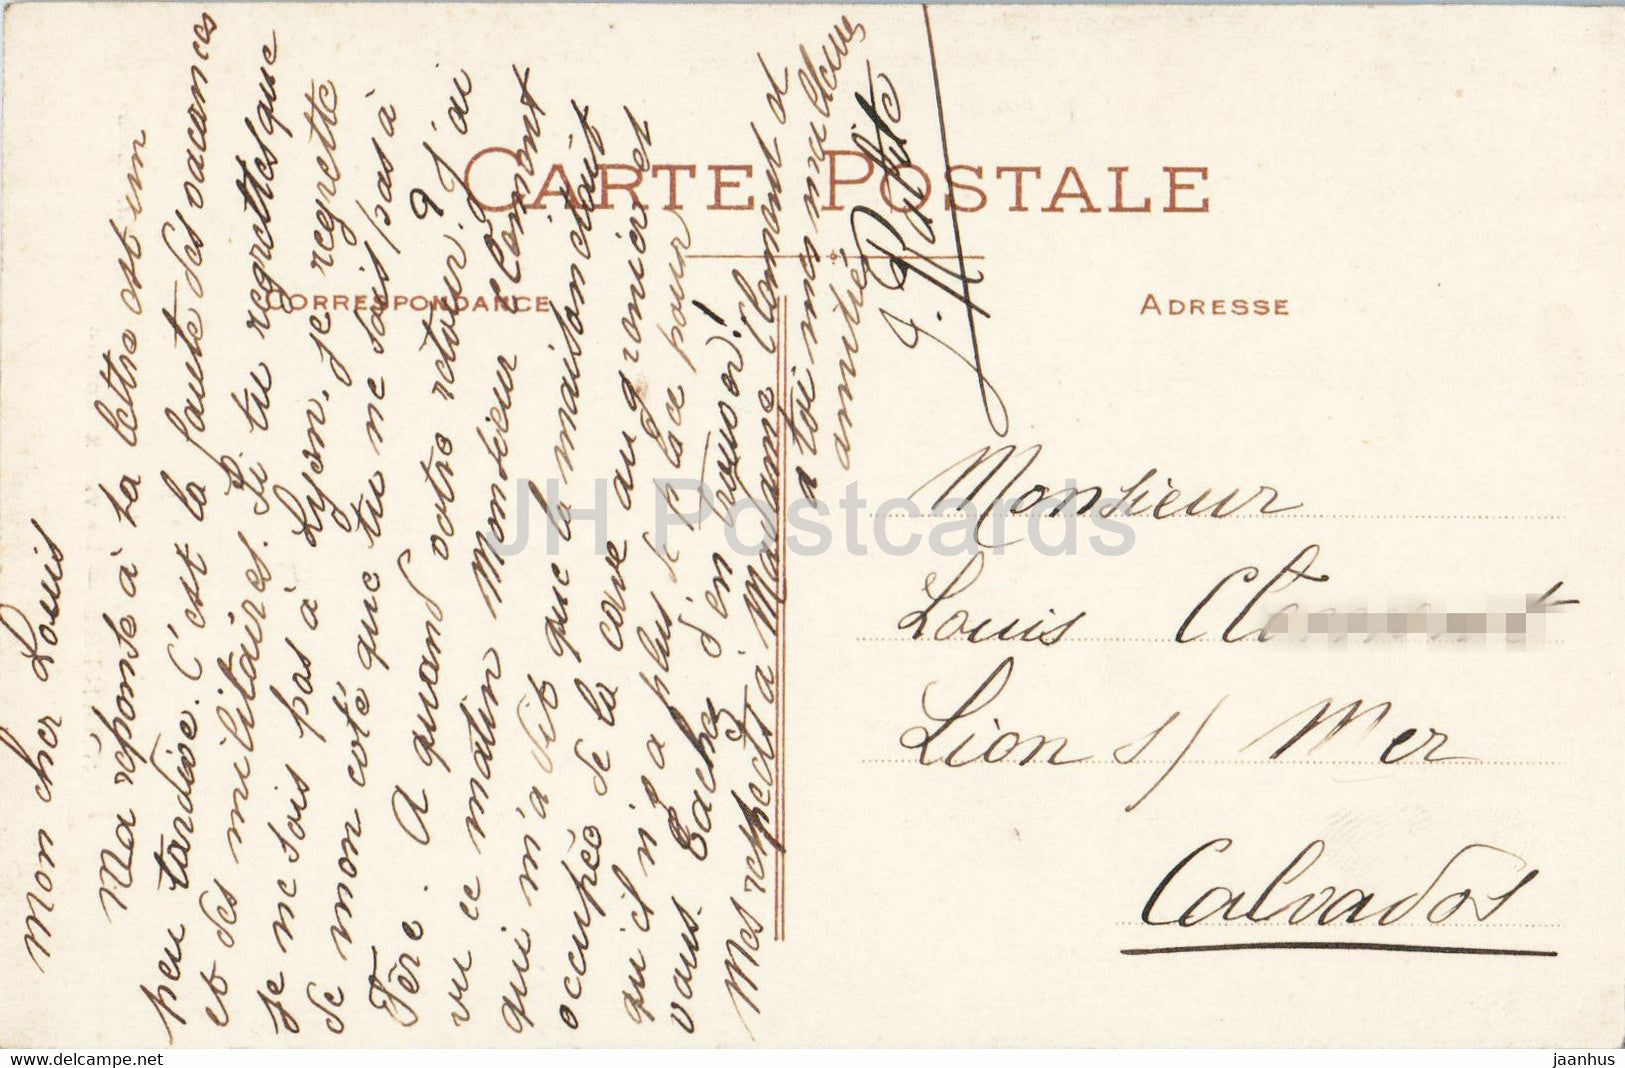 CARTE POSTALE
CORRESPONDANCE
ADRESSE
Mon cher Louis
Ma réponse à ta lettre est un
peu tardive. C'est la faute des vacances
et des militaires. Si tu regrettes que
je ne sois pas à Lyon, je regrette
de mon coté que tu ne sois pas à
Fère. A quand votre retour? J'ai
vu ce matin Monsieur Clément
qui m'a dit que la maison était
occupée de la cave au grenier et
qu'il n'a plus de place pour
vous. Tachez d'en trouver!
Mes respects à Madame Clement et
a toi mes meilleures
amitiés
J.
Monsieur
Louis
Lion s/ Mer
Calvados
JH Postcards
www.jhpostcards.com
jaanhus